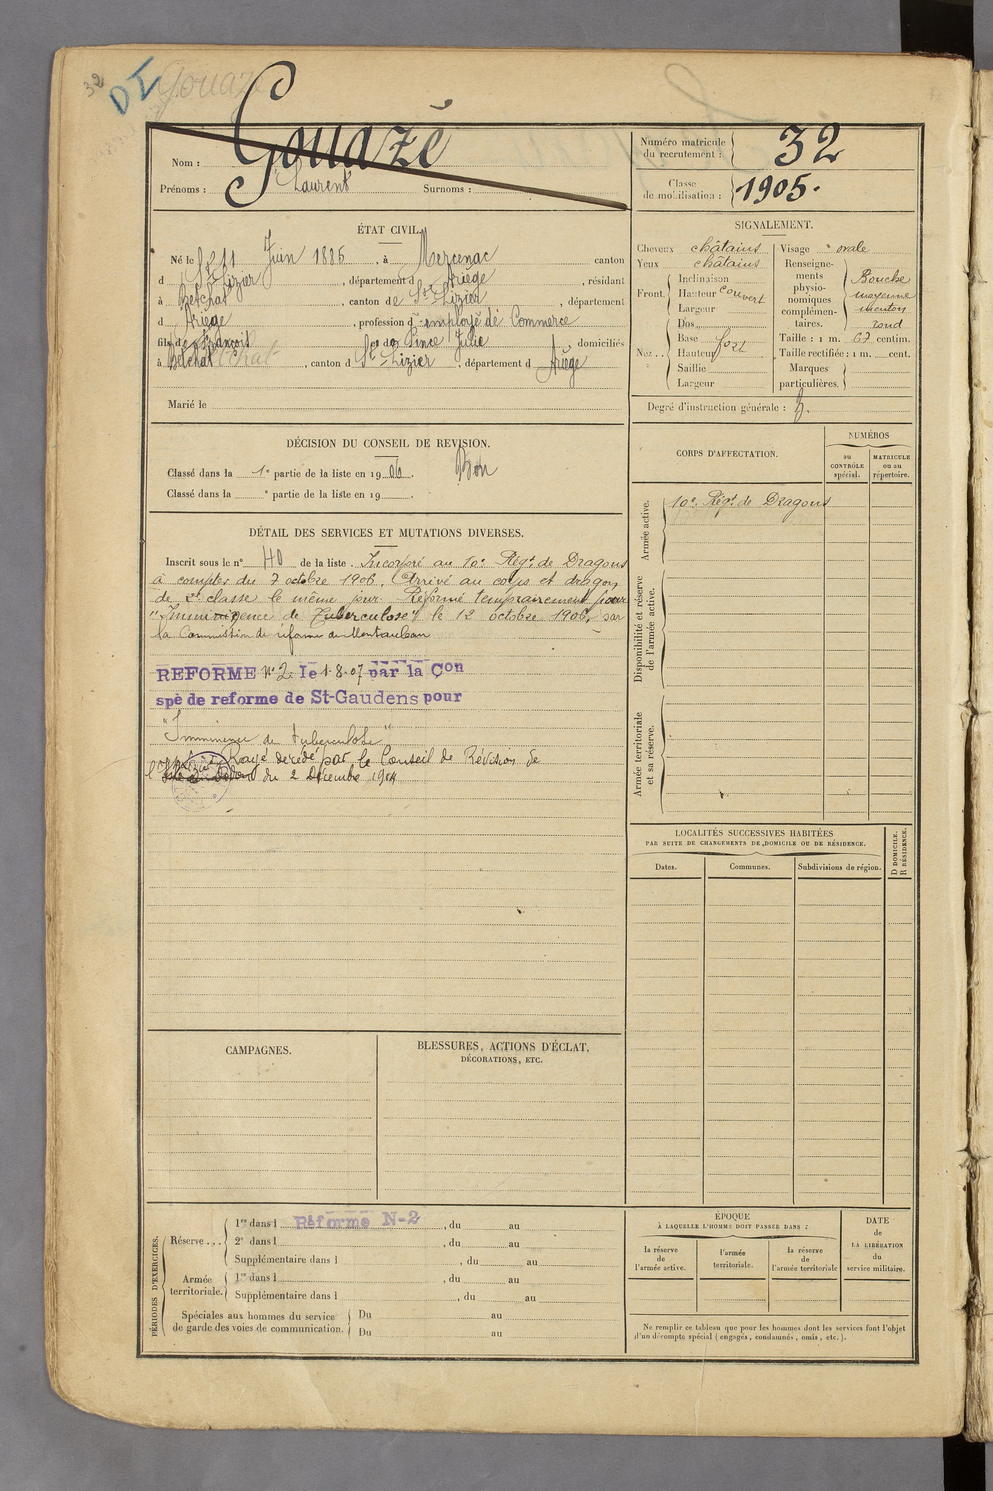 32
DI
Gouazé
Gouazé
Nom :
Prénoms : Laurent Surnoms :
Numéro matricule du recrutement : 32
Classe de mobilisation : 1905.
ÉTAT CIVIL.
Né le 11 Juin 1885, à Mercenac canton
d St Lizier, département d Ariège, résidant
à Betchat, canton de St Lizier, département
d Ariège, profession d employé de Commerce
fils de François et de Pince Julie domiciliés
à Betchat, canton d St Lizier, département d Ariège
Marié le
SIGNALEMENT.
Cheveux châtains
Yeux châtains
Front. Inclinaison
Hauteur couvert
Largeur
Nez.. Dos
Base fort
Hauteur
Saillie
Largeur
Visage ovale
Renseignements physionomiques complémentaires. Bouche moyenne menton rond
Taille : 1 m. 67 centim.
Taille rectifiée : 1 m. cent.
Marques particulières.
Degré d'instruction générale : 3.
DÉCISION DU CONSEIL DE REVISION.
Classé dans la 1e partie de la liste en 1906. Bon
Classé dans la e partie de la liste en 19 .
DÉTAIL DES SERVICES ET MUTATIONS DIVERSES.
Inscrit sous le n° 40 de la liste. Incorporé au 10e Régt de Dragons
à compter du 7 octobre 1906. Arrivé au corps et dragon
de 2e classe le même jour. Réformé temporairement pour
"Imminence de Tuberculose" le 12 octobre 1906, par
la Commission de réforme de Montauban
REFORME N° 2 le 1.8.07 par la Çon
spè de reforme de St-Gaudens pour
"Imminence de tuberculose"
Rayé décédé par le Conseil de Révision de
l'Ariège du 2 Décembre 1914
CORPS D'AFFECTATION.
NUMÉROS
au CONTRÔLE spécial.
MATRICULE ou au répertoire.
Armée active.
10e Régt de Dragons
Disponibilité et réserve de l'armée active.
Armée territoriale et sa réserve.
LOCALITÉS SUCCESSIVES HABITÉES
PAR SUITE DE CHANGEMENTS DE DOMICILE OU DE RÉSIDENCE.
Dates.
Communes.
Subdivisions de région.
D DOMICILE. R RÉSIDENCE.
CAMPAGNES.
BLESSURES, ACTIONS D'ÉCLAT,
DÉCORATIONS, ETC.
PÉRIODES D'EXERCICES.
Réserve... 1re dans l Réforme N-2, du au
2e dans l , du au
Supplémentaire dans l , du au
Armée territoriale. 1re dans l , du au
Supplémentaire dans l , du au
Spéciales aux hommes du service de garde des voies de communication. Du au
Du au
ÉPOQUE
À LAQUELLE L'HOMME DOIT PASSER DANS :
la réserve de l'armée active.
l'armée territoriale.
la réserve de l'armée territoriale
DATE de LA LIBÉRATION du service militaire.
Ne remplir ce tableau que pour les hommes dont les services font l'objet
d'un décompte spécial (engagés, condamnés, omis, etc.).